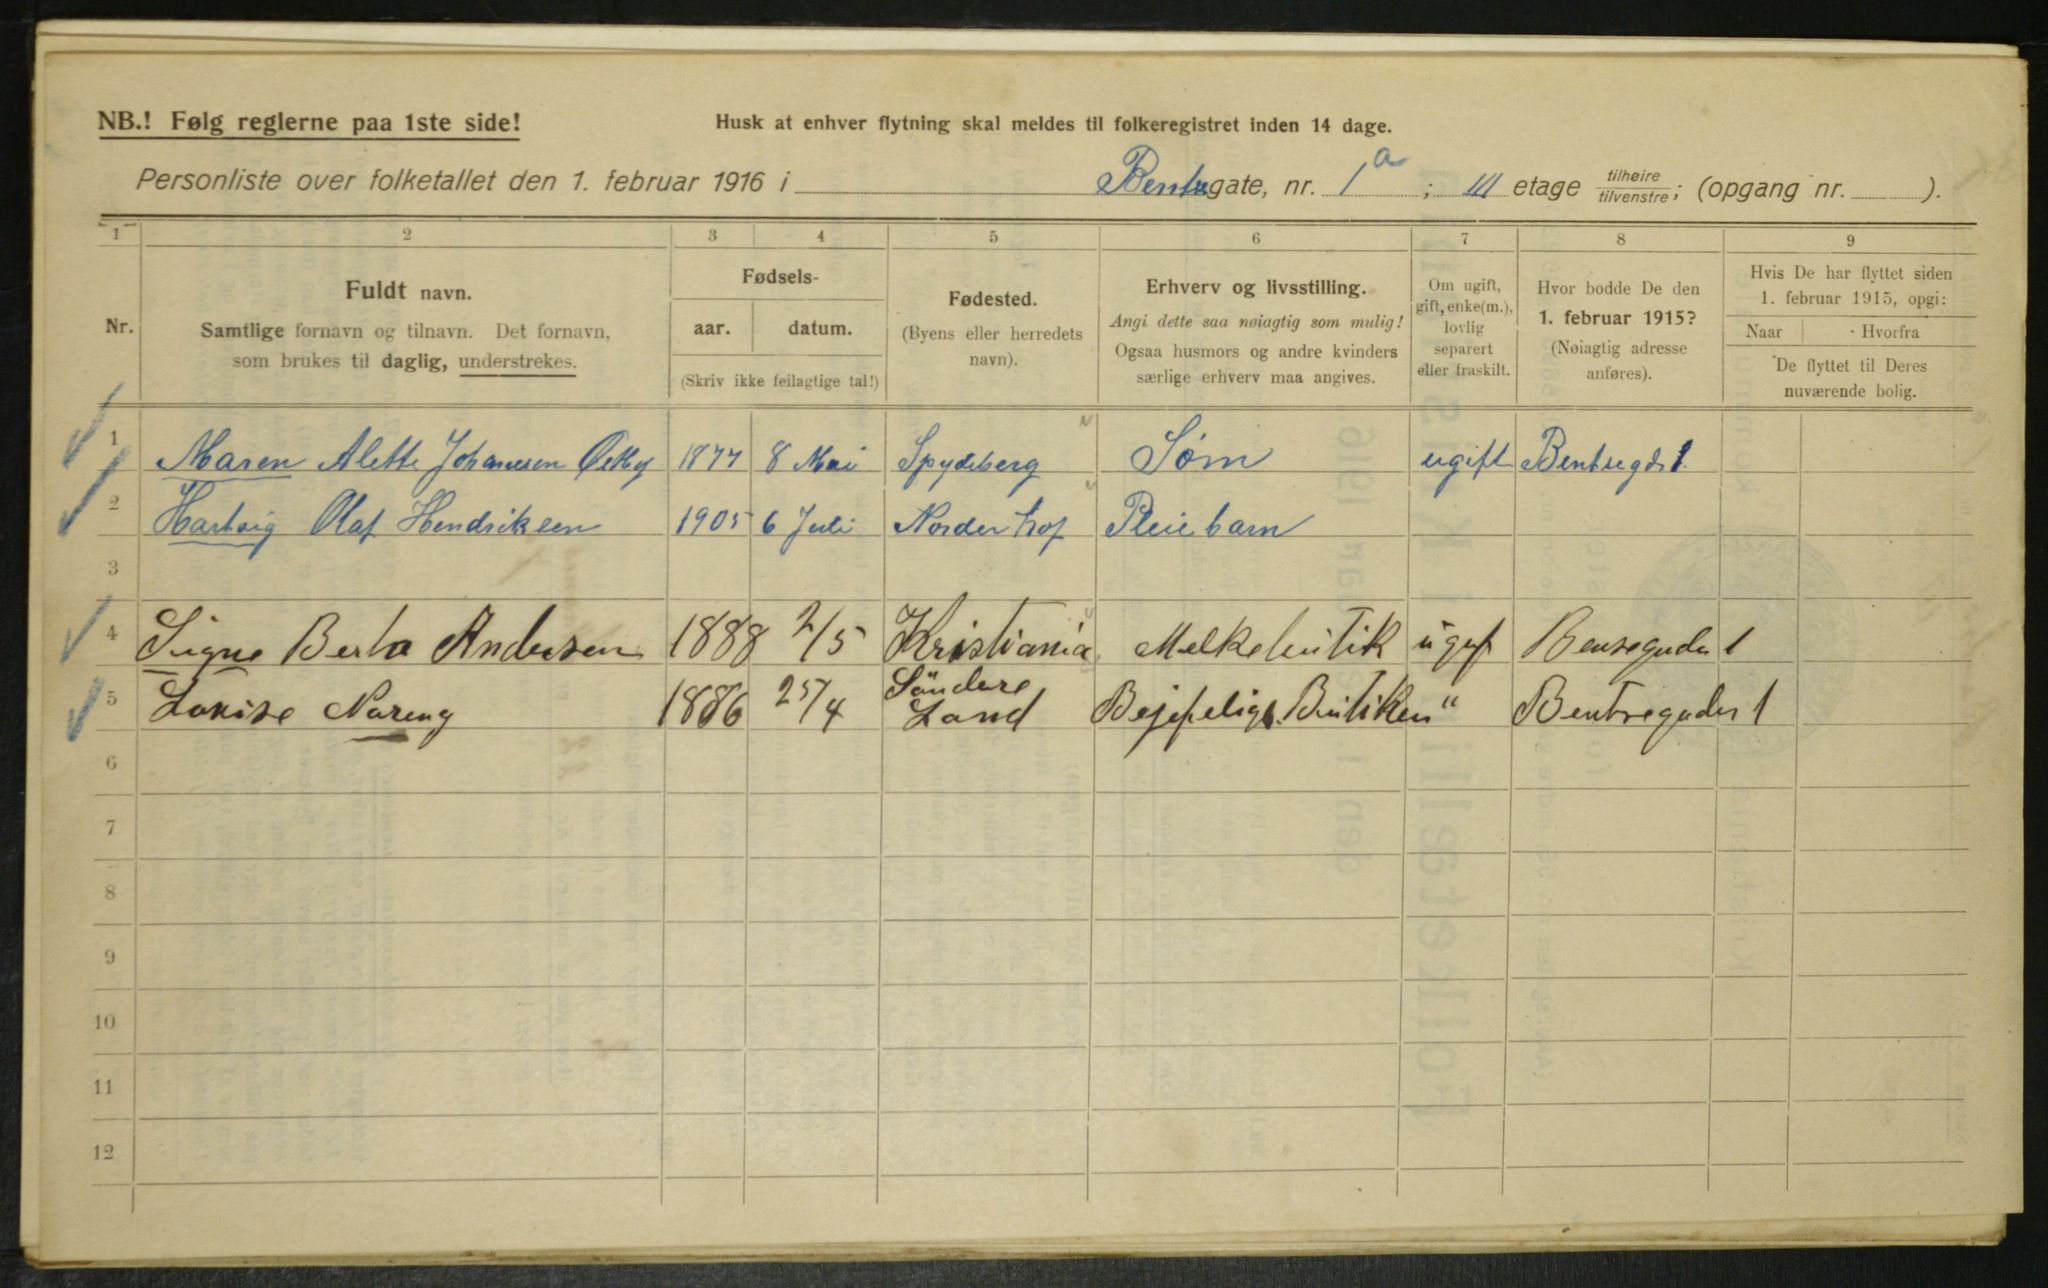 NB.! Følg reglerne paa 1ste side!
Husk at enhver flytning skal meldes til folkeregistret inden 14 dage.
Personliste over folketallet den 1. februar 1916 i Bentsegate, nr. 1a; III etage tilhøire/tilvenstre; (opgang nr. ).
1 2 3 4 5 6 7 8 9
Nr. Fuldt navn. Samtlige fornavn og tilnavn. Det fornavn, som brukes til daglig, understrekes.
Fødsels- aar. datum. (Skriv ikke feilagtige tal!)
Fødested. (Byens eller herredets navn).
Erhverv og livsstilling. Angi dette saa nøiagtig som mulig! Ogsaa husmors og andre kvinders særlige erhverv maa angives.
Om ugift, gift, enke(m.), lovlig separert eller fraskilt.
Hvor bodde De den 1. februar 1915? (Nøiagtig adresse anføres).
Hvis De har flyttet siden 1. februar 1915, opgi: Naar Hvorfra De flyttet til Deres nuværende bolig.
1 Maren Alette Johannesen 1877 8 Mai Spydeberg Søm ugift Bentsegd 1
2 Hartvig Olaf Hendriksen 1905 6 Juli Norderhof Pleiebarn
3
4 Signe Berta Andersen 1888 2/5 Kristiania Melkebutik ugif Bensegaden 1
5 Lovise Nøreng 1886 25/4 Söndere Land Butiken" Bentsegaden 1
6
7
8
9
10
11
12